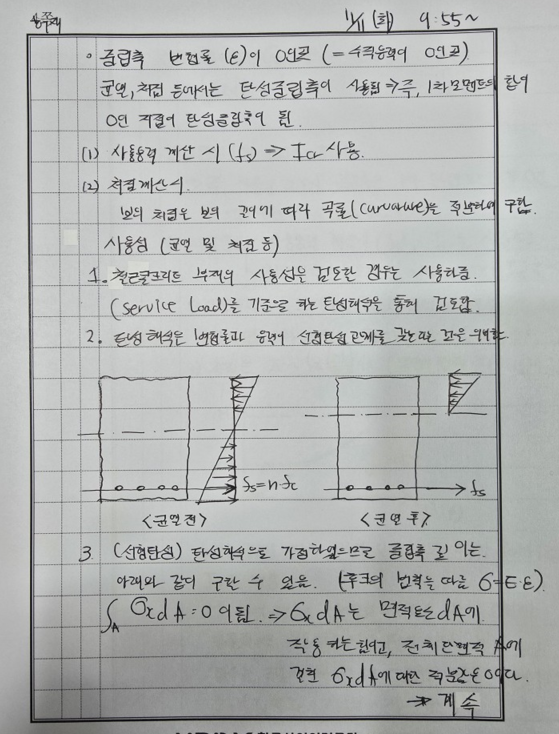 11/11 (화) 9:55~
° 중립축 변형률 (ε)이 0인곳 (= 수직응력이 0인곳)
균열, 처짐 등에서는 탄성중립축이 사용됨 ⇒ 즉, 1차모멘트의 합이
0인 지점이 탄성중립축이 됨.
(1) 사용응력 계산 시 (fs) ⇒ Icr 사용.
(2) 처짐계산시.
보의 처짐은 보의 길이에 따라 곡률(curvature)을 적분하여 구함.
사용성 (균열 및 처짐 등)
1. 철근콘크리트 부재의 사용성을 검토할 경우는 사용하중.
(service Load)를 기준으로 하는 탄성해석을 통해 검토함.
2. 탄성해석은 변형률과 응력이 선형탄성 관계를 갖는다는 것을 의미함.
fs=n·fc
fs
<균열전>
<균열후>
3. (선형탄성) 탄성해석으로 가정하였으므로 중립축 깊이는.
아래와 같이 구할 수 있음. (후크의 법칙을 따름 σ=E·ε).
∫A σx dA = 0 이 됨. ⇒ σx dA는 면적요소 dA에
작용하는 힘이고, 전체 단면적 A에
걸친 σx dA에 대한 적분값은 0이다.
→ 계속